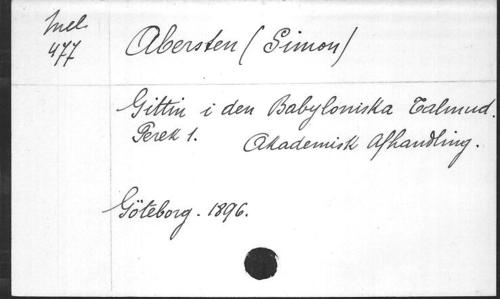 Mel.
477
Abersten (Simon)
Gittin i den Babyloniska Talmud.
Perek 1. Akademisk Afhandling.
Göteborg. 1896.